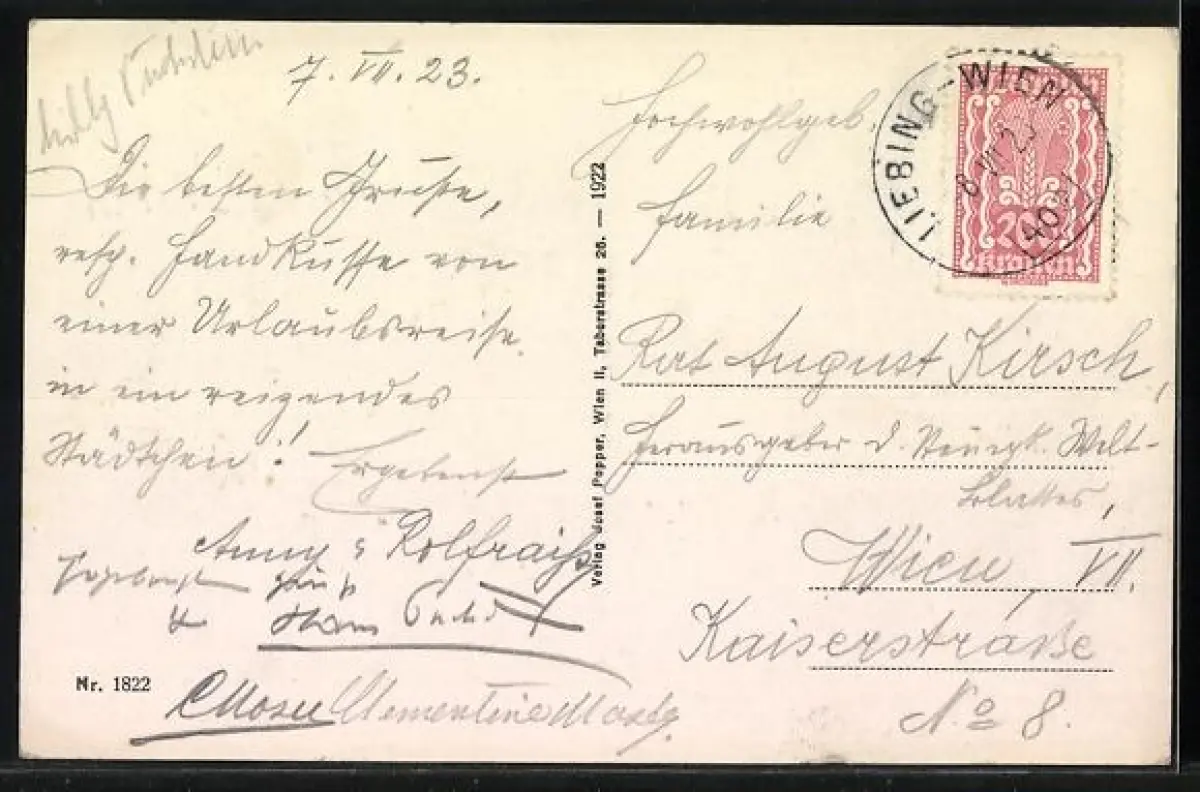 7. VII. 23.
Die besten Grüße,
resp. Handküsse von
einer Urlaubsreise
in ein reizendes
Städtchen!
Ergebenst
Anny &
Hans
Clementine
Nr. 1822
Verlag Josef Popper, Wien II, Taborstrasse 26. — 1922
LIEBING-WIEN
8 VII 23
200
Kronen
Hochwohlgeb.
Familie
Rat August Kirsch,
Herausgeber d. Neuigk. Welt-
Blattes,
Wien VII.
Kaiserstraße
No 8.